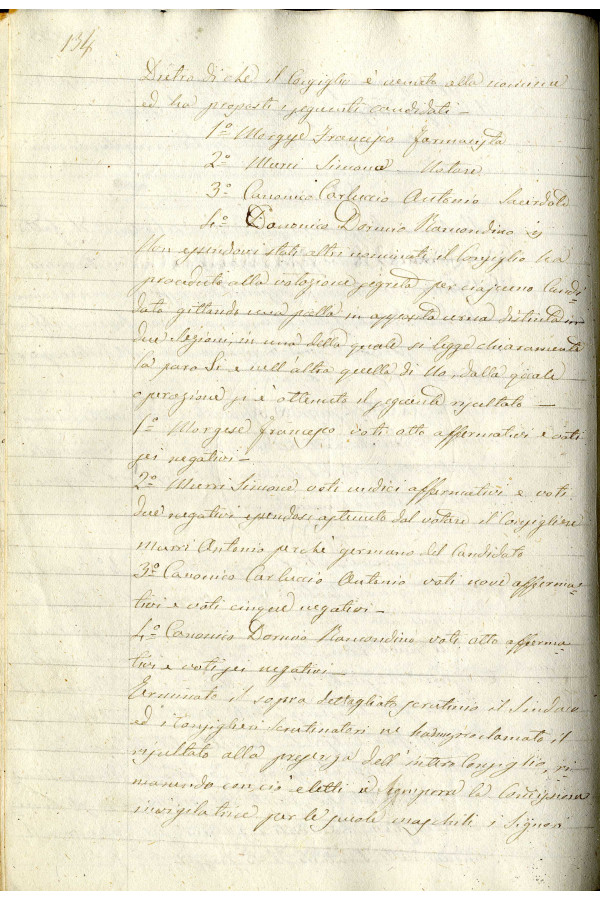 134
Dietro di che il Consiglio è venuto alla nomina
ed ha proposti i seguenti candidati —
1º Morgese Francesco farmacista
2º Murri Simone Notaro
3º Canonico Carluccio Antonio Sacerdote
4º Canonico Dormio Ramondino
Non essendovi stati altri nominati il Consiglio ha
proceduto alla votazione segreta per ciascuno Candi-
dato gittando una palla in apposita urna distinta in
due sezioni, in una della quale si legge chiaramente
la paro Si, e nell'altra quella di No, dalla quale
operazione si è ottenuto il seguente risultato —
1º Morgese Francesco voti otto affermativi e voti
sei negativi —
2º Murri Simone voti undici affermativi e voti
due negativi essendosi astenuto dal votare il Consigliere
Murri Antonio perchè germano del Candidato
3º Canonico Carluccio Antonio voti nove afferma-
tivi e voti cinque negativi —
4º Canonico Dormio Ramondino voti otto afferma-
tivi e voti sei negativi —
Terminato il sopra dettagliato scrutinio il Sindaco
ed i Consiglieri Scrutinatori ne hanno proclamato il
risultato alla presenza dell'intero Consiglio, ri-
manendo con ciò eletti a comporre la Commissione
invigilatrice per le scuole maschili i Signori